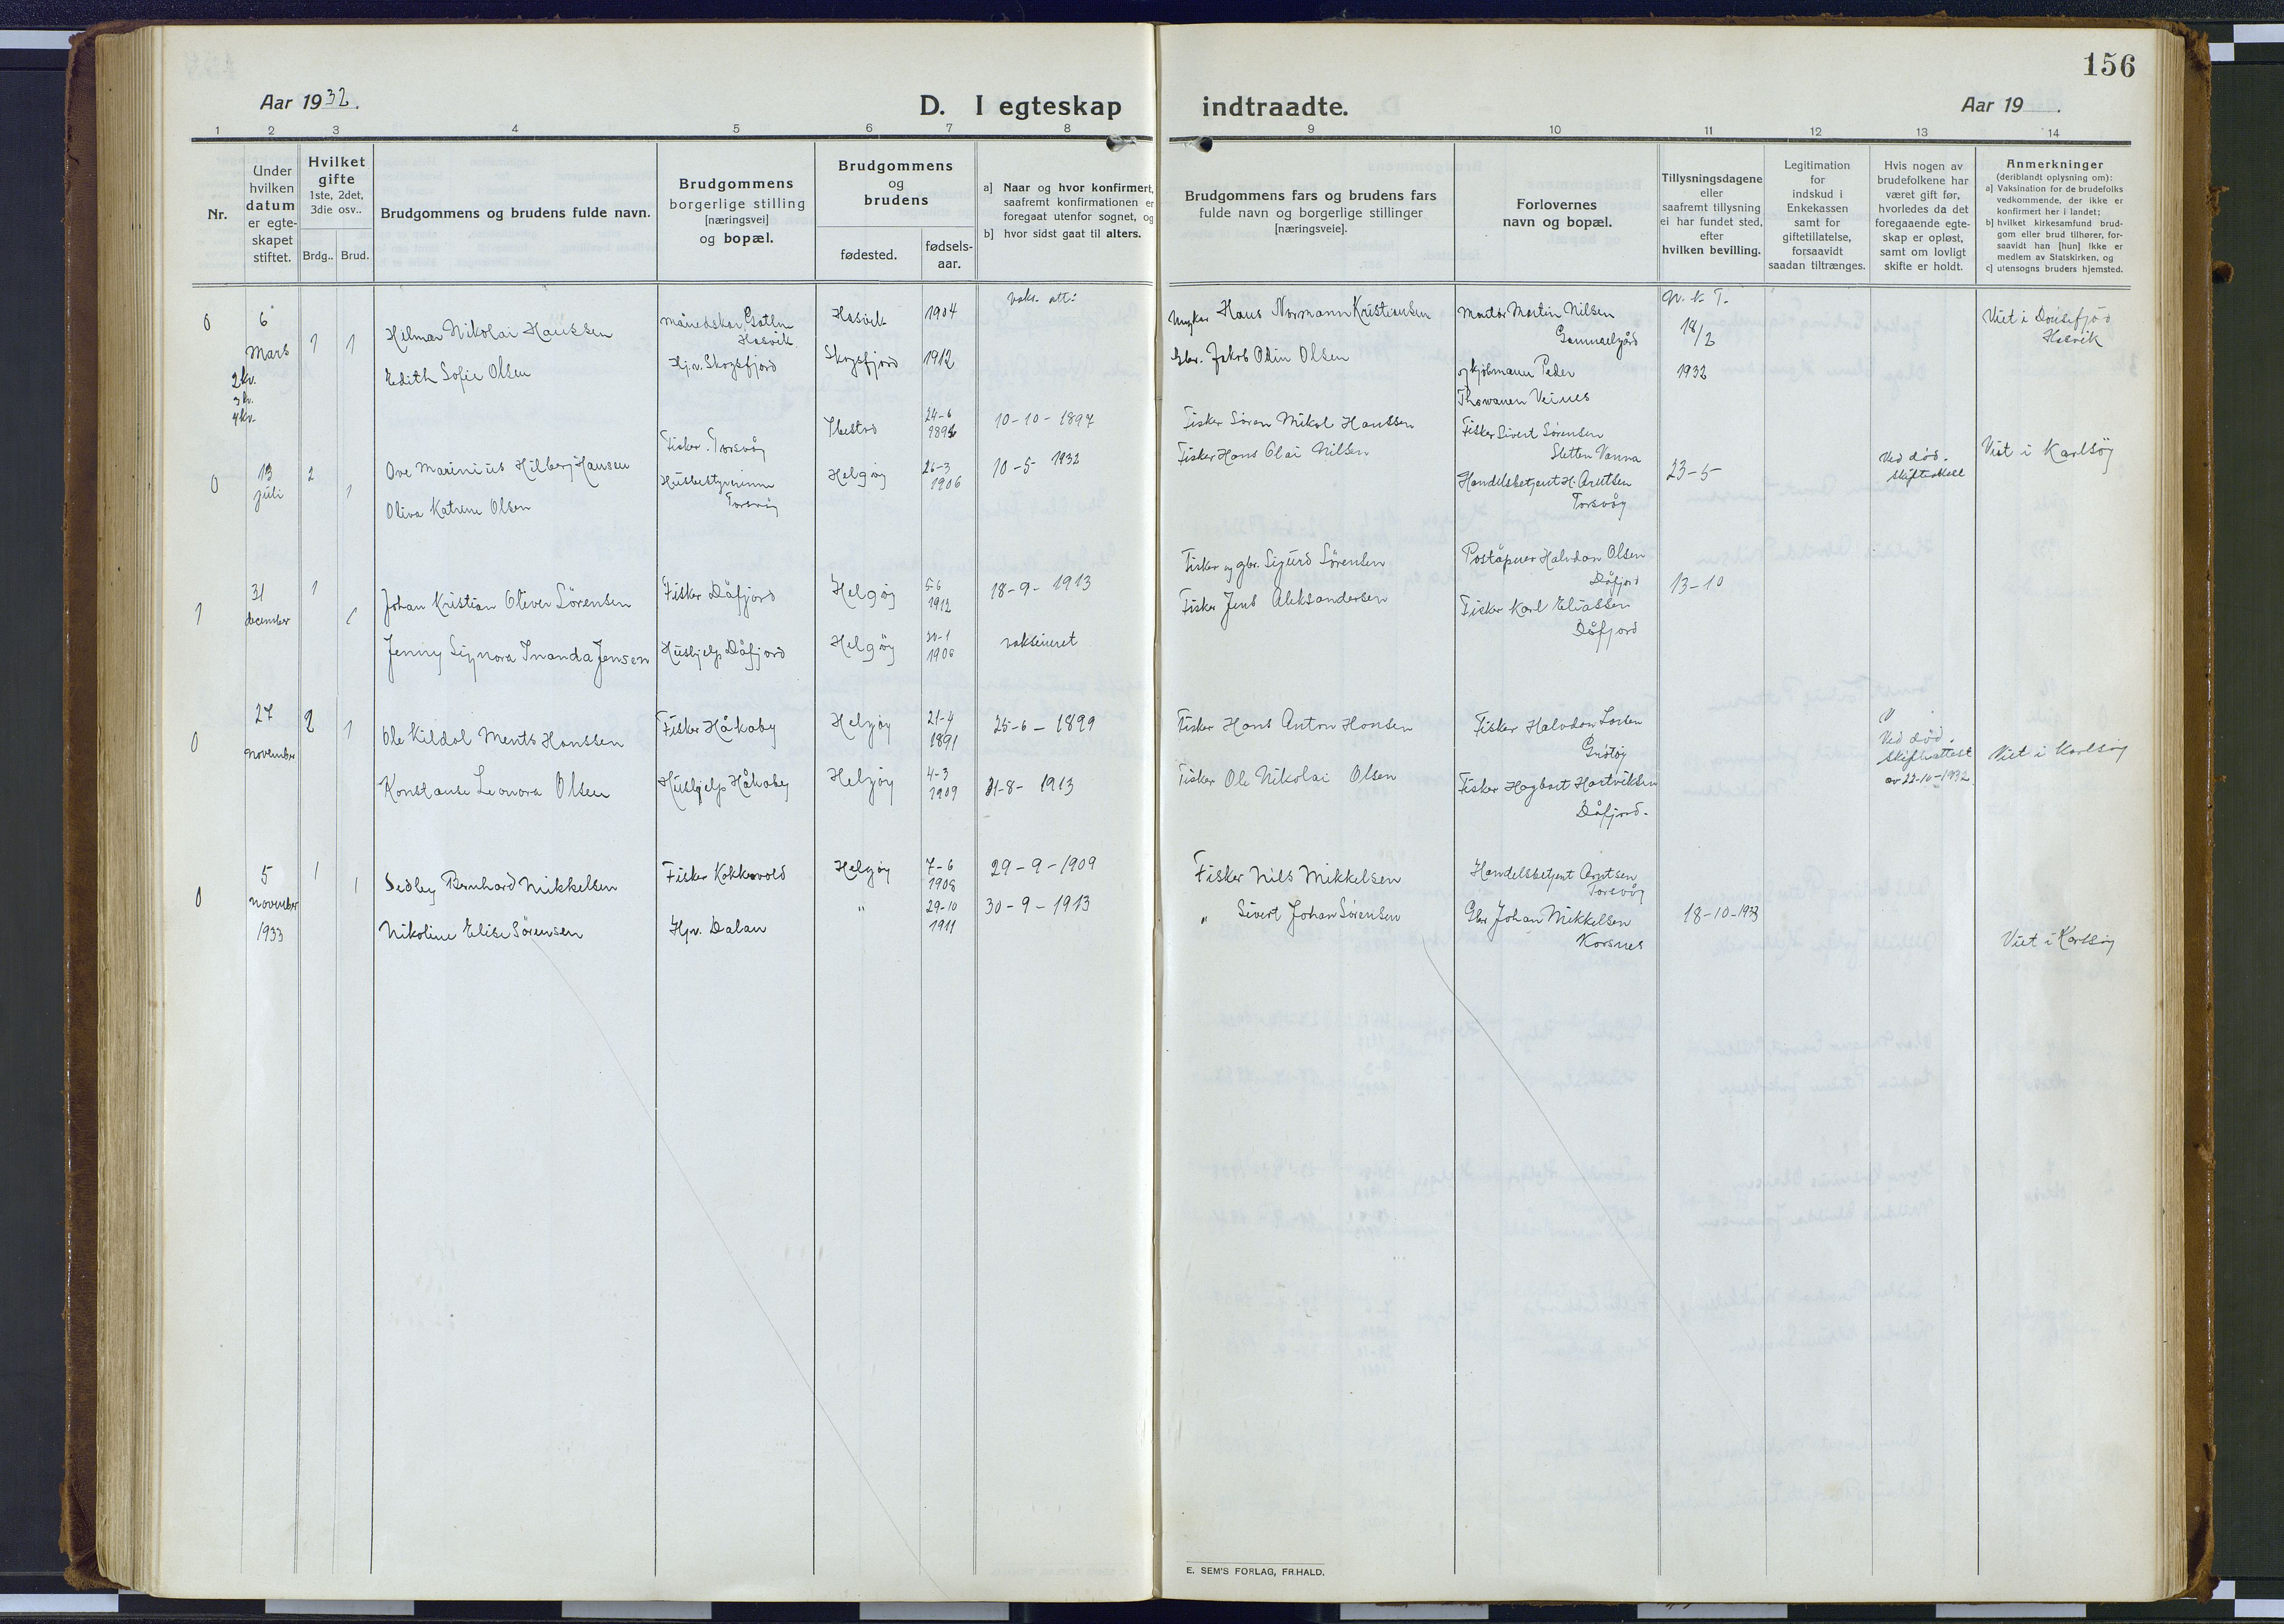 156
Aar 1932.
D. I egteskap indtraadte.
Aar 19
1 2 3 4 5 6 7 8 9 10 11 12 13 14
Nr.
Under hvilken datum er egte-skapet stiftet.
Hvilket gifte 1ste, 2det, 3die osv..
Brdg.. Brud.
Brudgommens og brudens fulde navn.
Brudgommens borgerlige stilling [næringsvei] og bopæl.
Brudgommens og brudens
fødested.
fødsels-aar.
a] Naar og hvor konfirmert, saafremt konfirmationen er foregaat utenfor sognet, og
b] hvor sidst gaat til alters.
Brudgommens fars og brudens fars fulde navn og borgerlige stillinger [næringsveie].
Forlovernes navn og bopæl.
Tillysningsdagene eller saafremt tillysning ei har fundet sted, efter hvilken bevilling.
Legitimation for indskud i Enkekassen samt for giftetillatelse, forsaavidt saadan tiltrænges.
Hvis nogen av brudefolkene har været gift før, hvorledes da det foregaaende egte-skap er opløst, samt om lovligt skifte er holdt.
Anmerkninger (deriblandt oplysning om):
a] Vaksination for de brudefolks vedkommende, der ikke er konfirmert her i landet;
b] hvilket kirkesamfund brud-gom eller brud tilhører, for-saavidt han [hun] ikke er medlem av Statskirken, og
c] utensogns bruders hjemsted.
0 6 Mars 1 1
2 kv.
3 kv.
4 kv.
Hilmar Nikolai Hanssen
Hasvik
Hasvik 1904 vaks. att:
Hans Normann Kristiansen
Martin Nilsen
Gammelgård
18/2
Viet i
Hasvik
Edith Sofie Olsen
Hj.v. Skogsfjord
Skogsfjord 1912
Gbr. Jakob Odin Olsen
og kjøbmann Peder
1932
0 13 juli 2 1
Ove Marinius Hilberg Hansen
Fisker. Torsvåg
Ibestad 24-6 10-10-1897
Fisker Søren Mikal Hanssen
Fisker Sivert Sørensen
Sletten Vanna
23-5
Ved død.
Viet i Karlsøy
Oliva Katrine Olsen
Husbestyrerinne
Torsvåg
Helgøy 26-3 1906 10-5 1932
Fisker Hans Olai Nilsen
Handelsbetjent H. Arntsen
Torsvåg
1 31 december 1 1
Johan Kristian Oliver Sørensen
Fisker Dåfjord
Helgøy 5-6 1912 18-9-1913
Fisker og gbr. Sigurd Sørensen
Poståpner Halvdan Olsen
Dåfjord
13-10
Jenny Signora Inanda Jensen
Hushjelp Dåfjord
Helgøy 1908 vaksineret
Fisker Jens Aleksandersen
Fisker Karl Eliassen
Dåfjord
0 27 november 2 1
Ole Kildal Ments Hanssen
Fisker Håkøby
Helgøy 21-4 1891 25-6-1899
Fisker Hans Anton Hansen
Fisker Halvdan Larsen
Grøtøy
Ved død.
Skifteattest
av 22-10-1932
Viet i Karlsøy
Konstanse Leonora Olsen
Hushjelp Håkøby
Helgøy 4-3 1909 31-8-1913
Fisker Ole Nikolai Olsen
Fisker Hagbart Hartviksen
Dåfjord.
0 5 november 1933 1 1
Sedley Bernhard Mikkelsen
Fisker Kokkvold
Helgøy 7-6 1908 29-9-1909
Fisker Nils Mikkelsen
Handelsbetjent Arntsen
Torsvåg
18-10-1933
Viet i Karlsøy
Nikoline Elise Sørensen
Hjv. Dalan
" 29-10 1911 30-9-1913
" Sivert Johan Sørensen
Gbr Johan Mikkelsen
Korsnes
E. SEM'S FORLAG, FR.HALD.